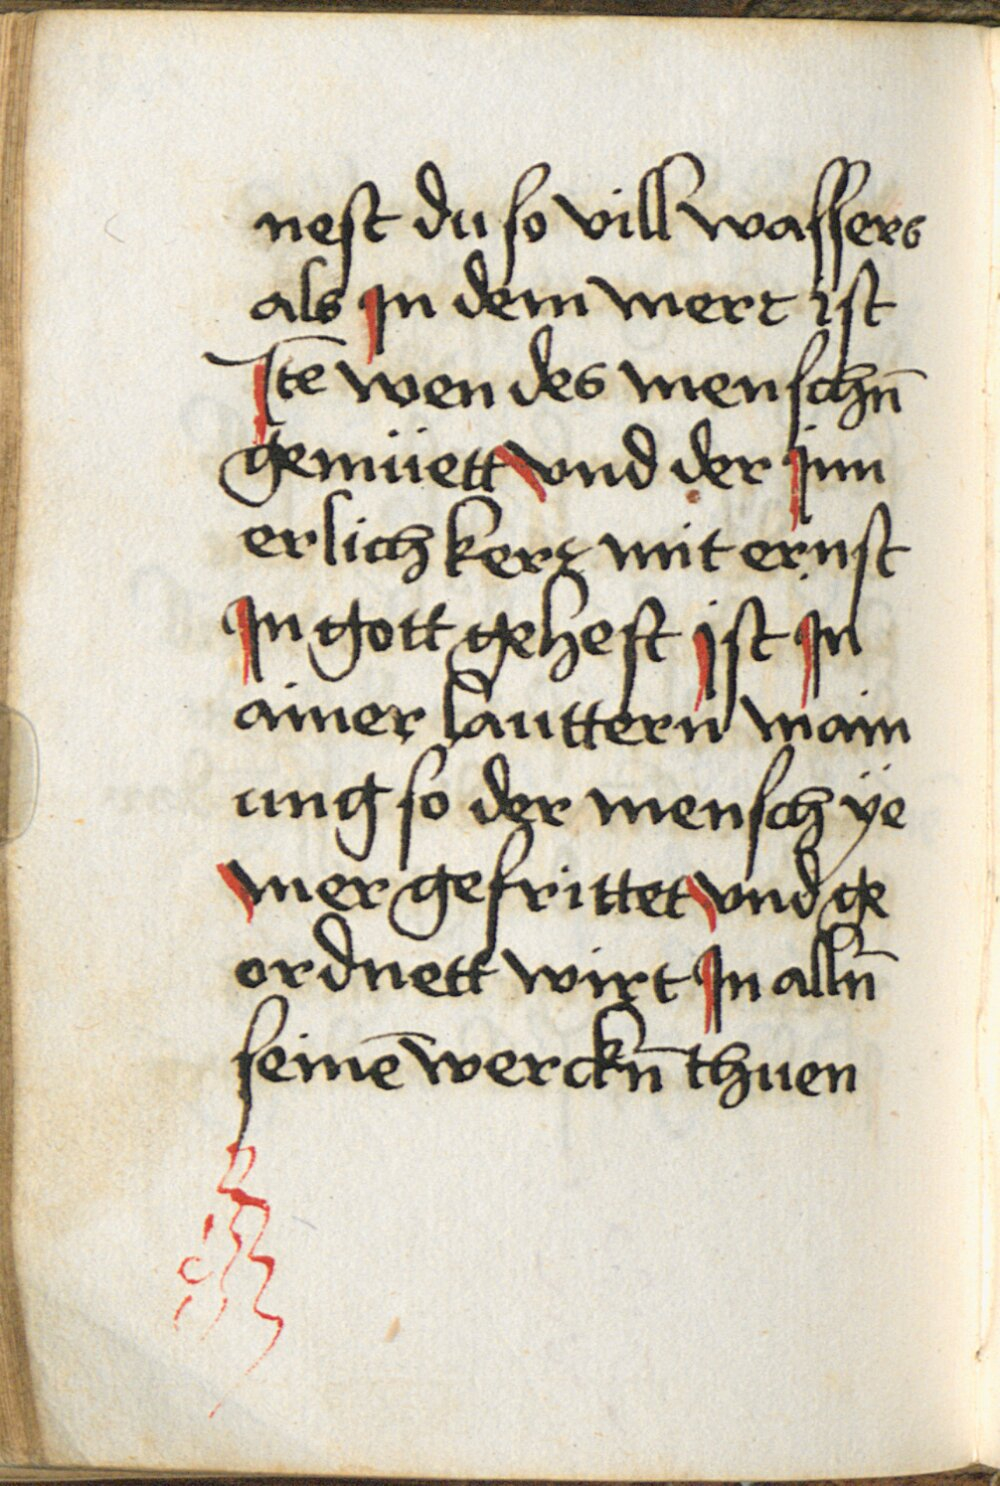 nest du so vill wassers
als in dem merr ist
Itē wen des menschn̄
gemüett vnd der jnn
erlich kerr mit ernst
Jn gott geheft ist jn
ainer lauttern main
ung so der mensch ÿe
mer gefrittet vnd ge
ordnett wirt Jn alln̄
seinē werckn̄ thuen